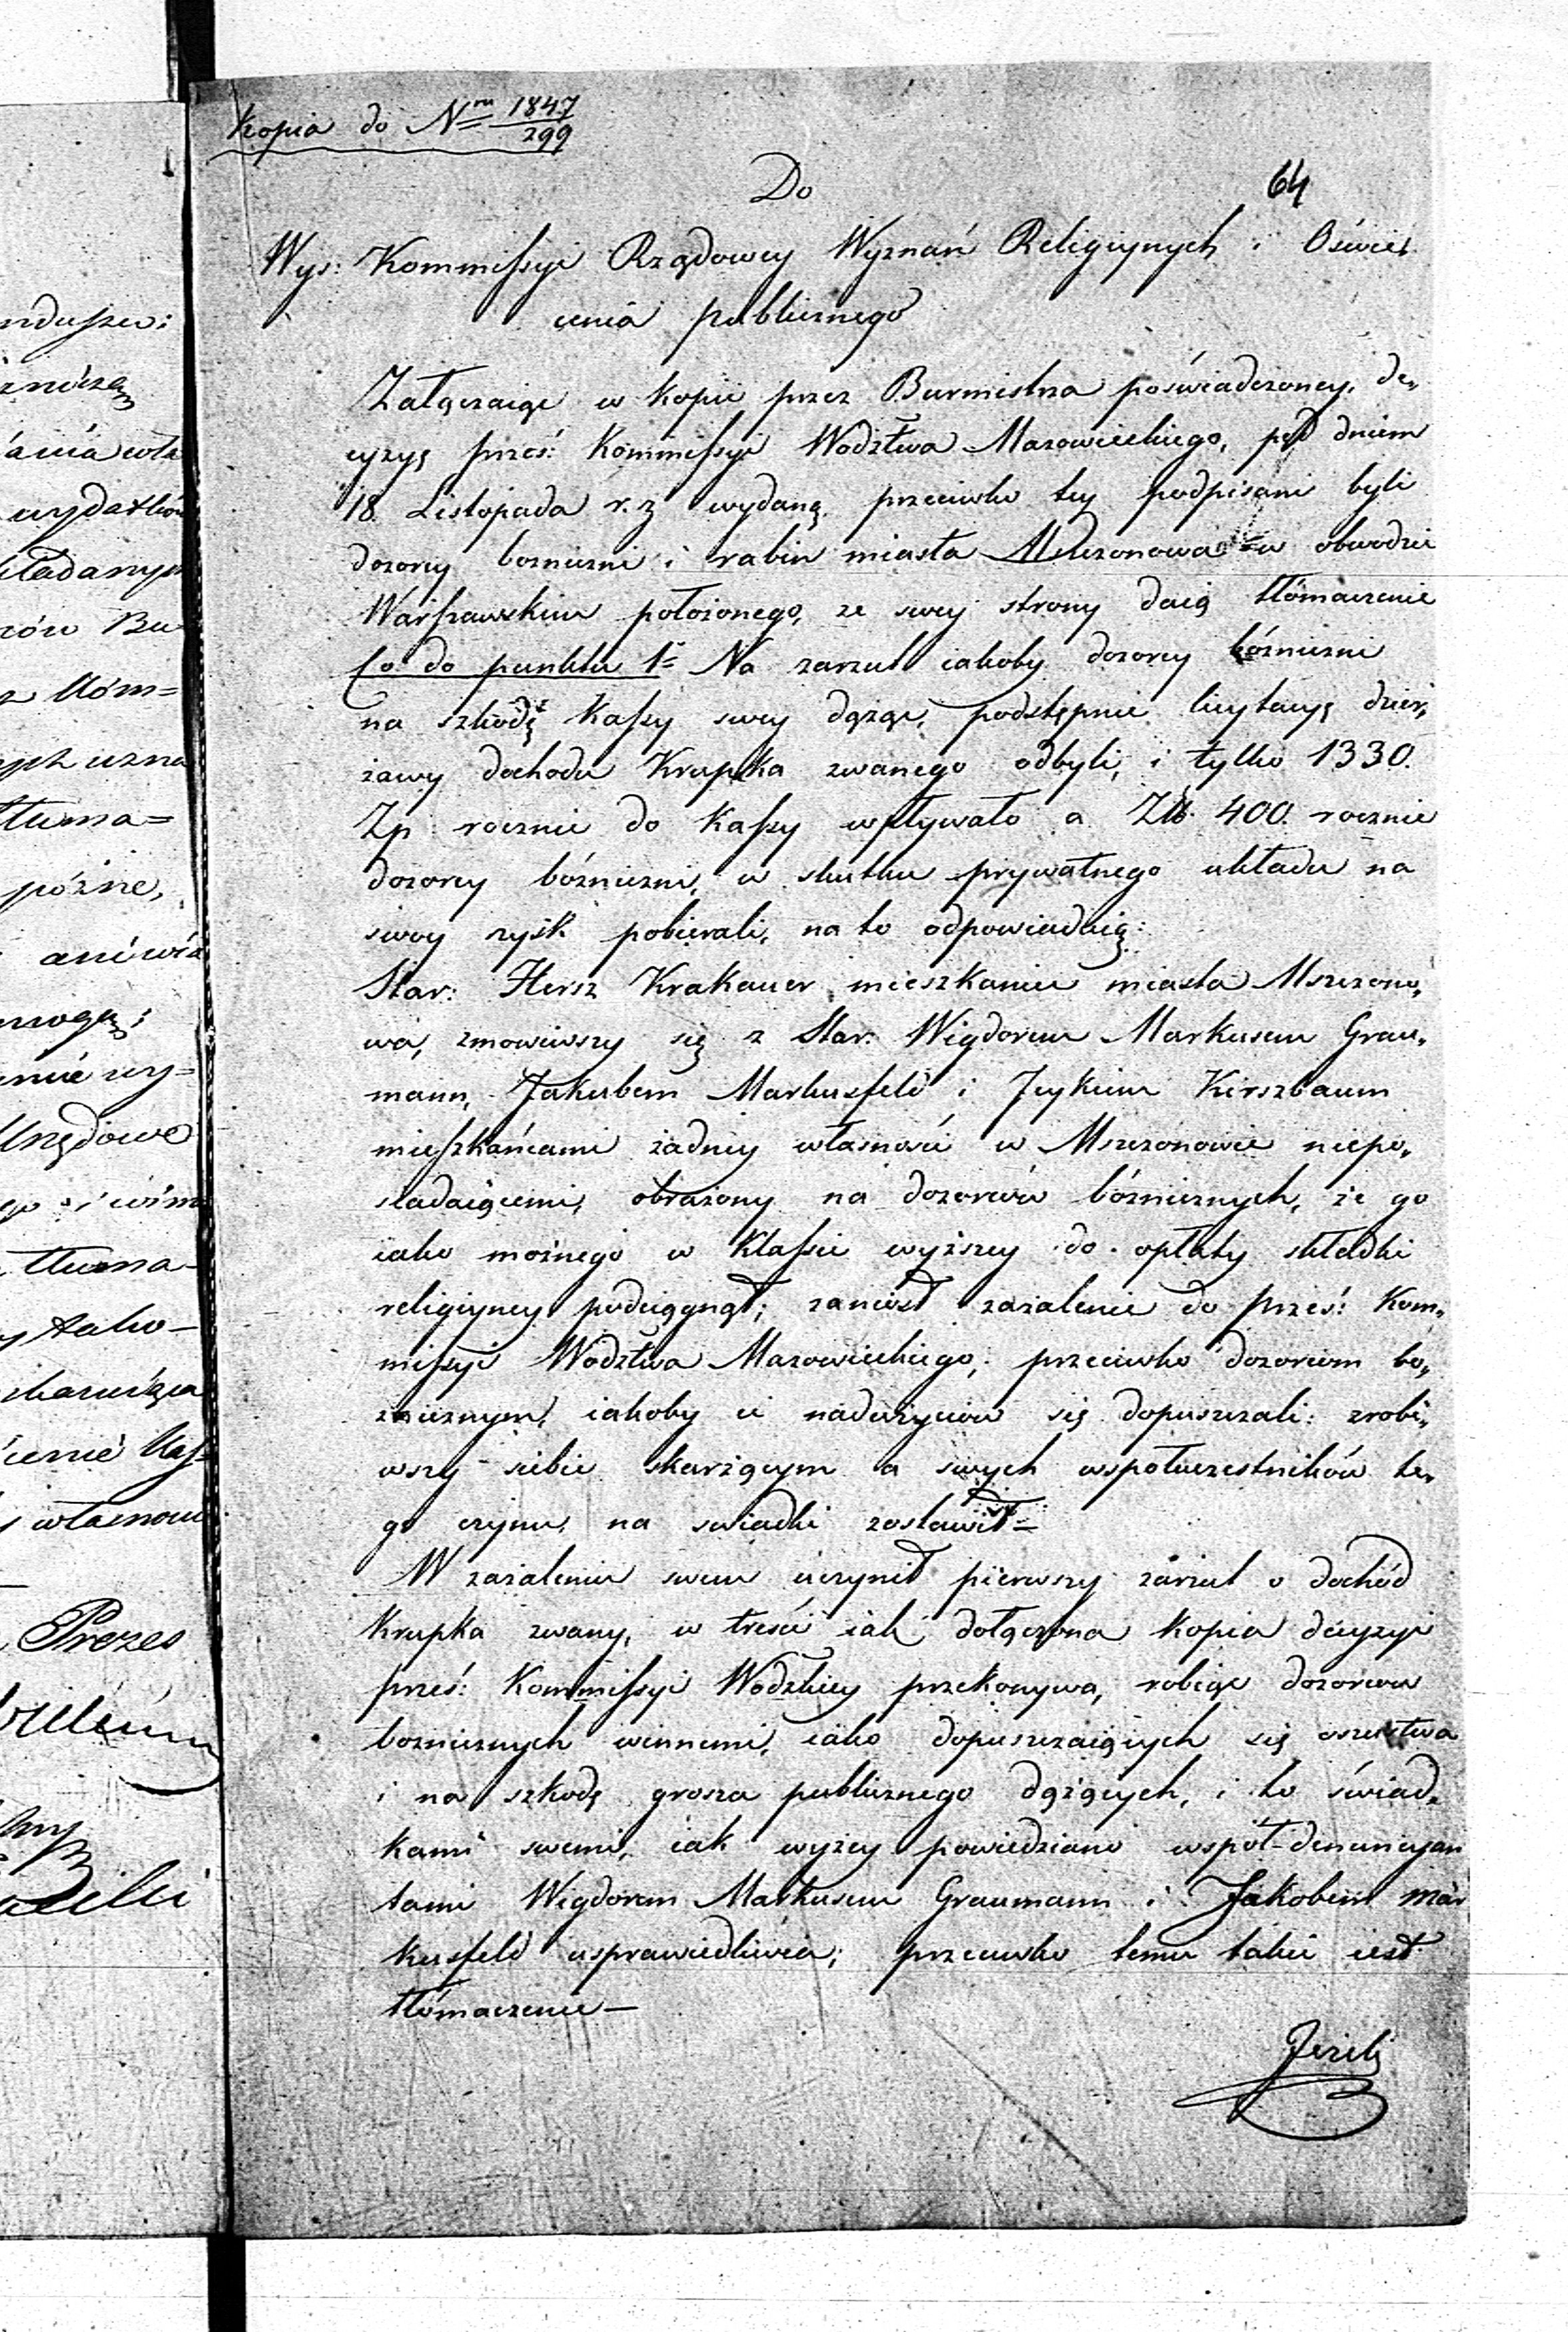 Kopia do Nru 1847
299
Do
64
Wys: Kommissyi Rządowey Wyznań Religiynych i Oświe,
cenia publicznego
Załączaiąc w kopii przez Burmistrza poświadczoney, de,
cyzyę prześ: Kommissyi Wodztwa Mazowieckiego, pod dniem
18. Listopada r. z wydaną przeciwko tey podpisani byli
dozorcy bozniczni i rabin miasta Mszczonowa w obwodzie
Warszawskim położonego, ze swey strony daią tłómaczenie
Co do punktu 1º Na zarzut iakoby dozorcy bózniczni
na szkodę Kassy swey dążąc, podstępnie licytacyę dzier,
żawy dochodu Krupka zwanego odbyli, i tylko 1330.
Zp rocznie do Kassy wpływało a Zł. 400. rocznie
dozorcy bózniczni, w skutku prywatnego układu na
swoy zysk pobierali, na to odpowiadaią:
Star: Hersz Krakauer mieszkaniec miasta Mszczono,
wa, zmowiwszy się z Star: Wigdorem Markusem Grau,
mann, Jakubem Markusfeld i Jcykiem Kirszbaum
mieszkańcami żadney własności w Mszczonowie niepo,
siadaiącemi, obrażony na dozorców bóznicznych, że go
iako możnego w Klassie wyższey do opłaty składki
religiyney podciągnął; zaniósł zażalenie do prześ: Kom,
missyi Wodztwa Mazowieckiego, przeciwko dozorcom bo,
znicznym, iakoby ci nadużyciów się dopuszczali: zrobi,
wszy siebie skarżącym a swych współuczestników te,
go czynu, na swiadki zostawił =
W zażaleniu swem uczynił pierwszy zarzut o dochód
Krupka zwany, w treści iak dołączona kopia decyzyi
prześ: Kommissyi Wodzkiey przekonywa, robiąc dozorców
boznicznych winnemi, iako dopuszczaiących się oszustwa
i na szkodę grosza publicznego dążących, i to świad,
kami swemi, iak wyżey powiedziano współ-denuncyan
tami Wigdorem Markusem Graumann i Jakobem Mar
kusfeld usprawiedliwia; przeciwko temu takie iest
tłómaczenie —
Jeżeli